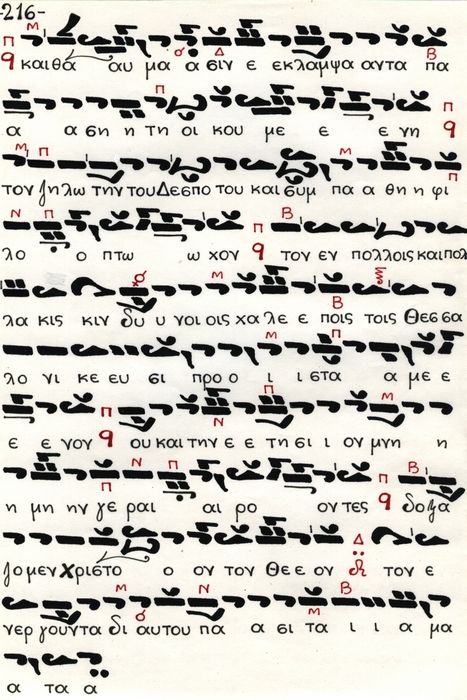 -216-
και θα αυ μα α σιν ε εκλαμψα αντα πα
α α ση η τη οι κου με ε ε νη
τον ζηλω την του Δεσπο του και συμ πα α θη η φι
λο ο πτω ω χον τον εν πολλοις και πολ
λα κις κιν δυ υ νοι οις χα λε ε ποις τοις Θεσ σα
λο νι κε ευ σι προ ο ι ι στα α με ε
ε ε νον ου και την ε ε τη σι ι ον μνη η
η μη ην γε ραι αι ρο ον τες δοξα
ζο μεν Χριστο ο ον τον Θε ε ον τον ε
νερ γουντα δι αυτου πα α σι τα ι ι α μα
α τα α